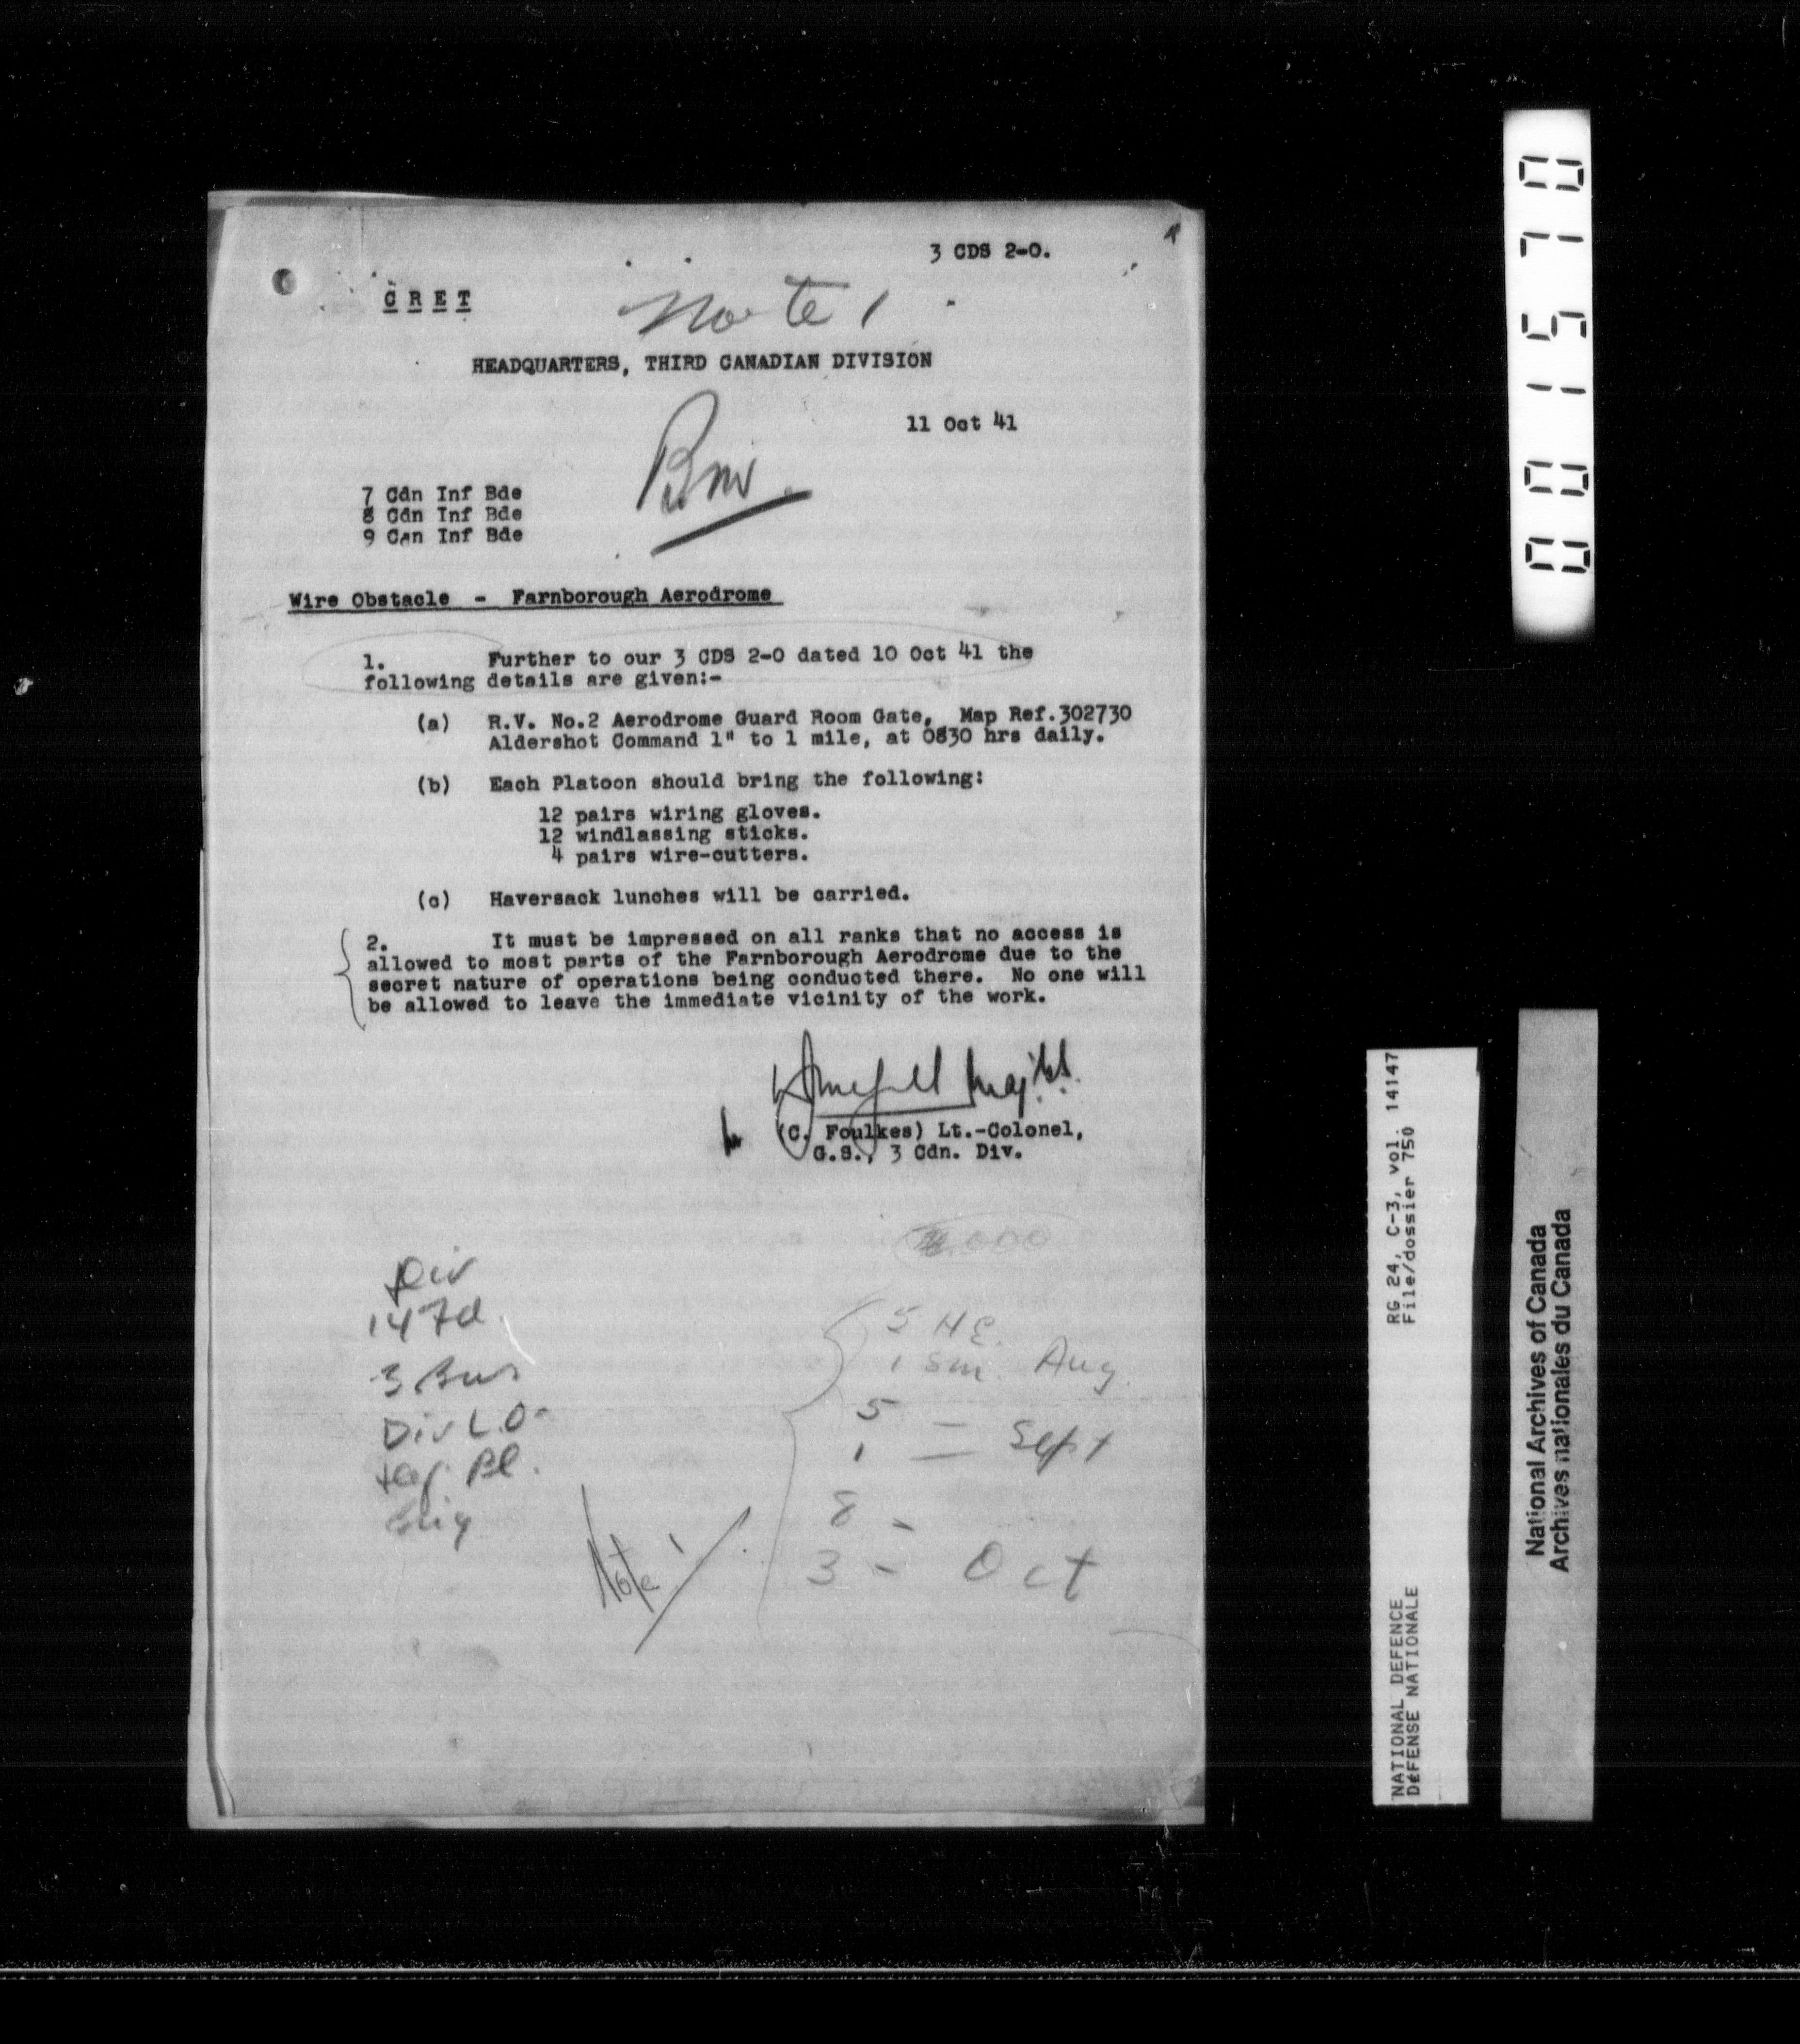 3 CDS 2-0.
C R E T
Note 1
HEADQUARTERS, THIRD CANADIAN DIVISION
11 Oct 41
7 Cdn Inf Bde
8 Cdn Inf Bde
9 Can Inf Bde
Wire Obstacle - Farnborough Aerodrome
1. Further to our 3 CDS 2-0 dated 10 Oct 41 the
following details are given:-
(a) R.V. No.2 Aerodrome Guard Room Gate, Map Ref.302730
Aldershot Command 1" to 1 mile, at 0830 hrs daily.
(b) Each Platoon should bring the following:
12 pairs wiring gloves.
12 windlassing sticks.
4 pairs wire-cutters.
(c) Haversack lunches will be carried.
2. It must be impressed on all ranks that no access is
allowed to most parts of the Farnborough Aerodrome due to the
secret nature of operations being conducted there. No one will
be allowed to leave the immediate vicinity of the work.
(C. Foulkes) Lt.-Colonel,
G.S., 3 Cdn. Div.
Div
14 Fd.
3
Div L.O.
5 H E.
1 Sm. Aug.
5
1 — Sept
8 -
3 - Oct
Note 1
001570
RG 24, C-3, vol. 14147
File/dossier 750
NATIONAL DEFENCE
DÉFENSE NATIONALE
National Archives of Canada
Archives nationales du Canada